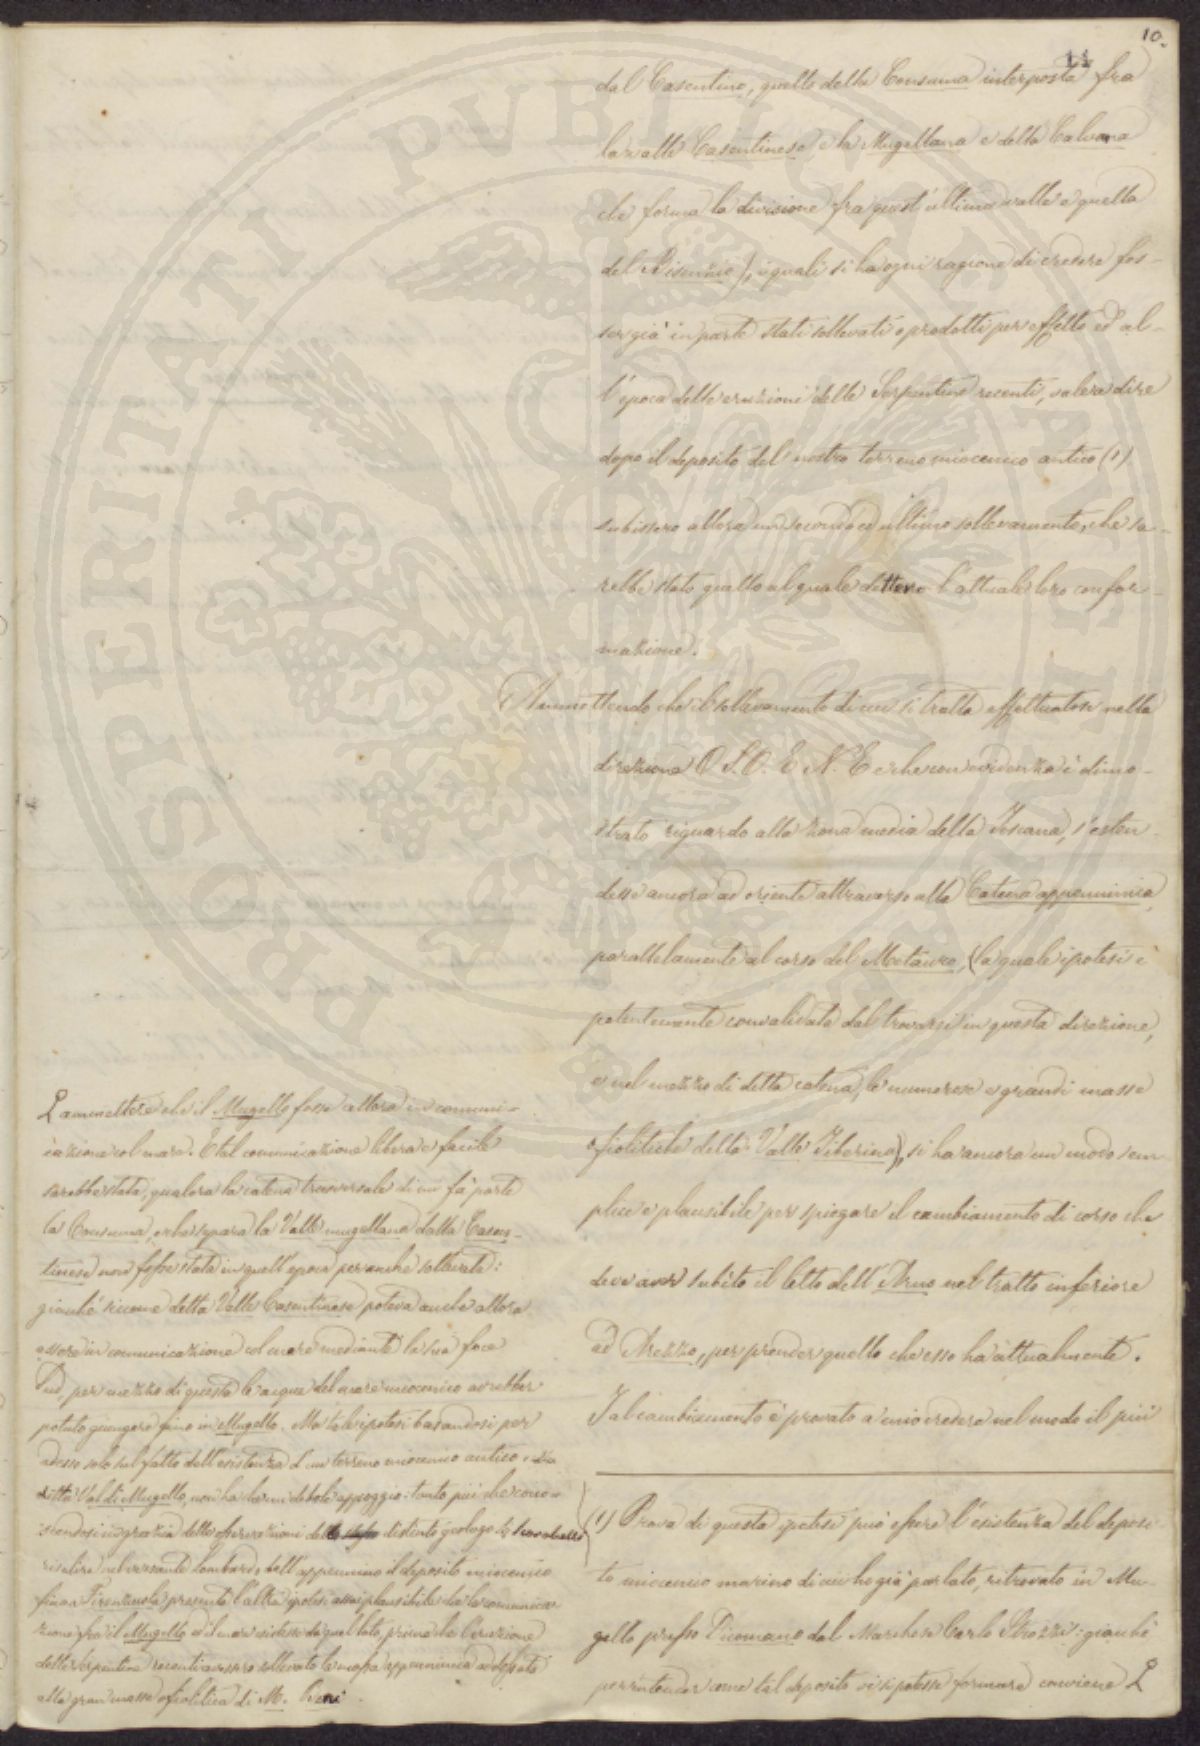 10.
11
dal Casentino, quello della Consuma interposta fra
la valle Casentinese e la Mugellana e della Calvana
che forma la divisione fra quest'ultima valle e quella
del Bisenzio), i quali si ha ogni ragione di credere fos-
ser già in parte stati sollevati o prodotti per effetto ed al-
l'epoca delle eruzioni delle Serpentine recenti, vale a dire
dopo il deposito del nostro terreno miocenico antico (1)
subissero allora un secondo ed ultimo sollevamento, che sa-
rebbe stato quello al quale dettero l'attuale loro confor-
mazione.
Ammettendo che il sollevamento di cui si tratta effettuatosi nella
direzione O S.O. E N. E e che con evidenza è dimo-
strato riguardo alla zona media della Toscana, s'esten-
desse ancora ad oriente attraverso alla Catena appenninica
parallelamente al corso del Metauro, (la quale ipotesi è
potentemente convalidata dal trovarsi in questa direzione,
e nel mezzo di detta catena, le numerose e grandi masse
ofiolitiche della Valle Tiberina), si ha ancora un modo sem
plice e plausibile per spiegare il cambiamento di corso che
deve aver subito il letto dell'Arno nel tratto inferiore
ad Arezzo, per prender quello che esso ha attualmente.
Tal cambiamento è provato a mio credere nel modo il più
(1) Prova di questa ipotesi può essere l'esistenza del deposi-
to miocenico marino di cui ho già parlato, ritrovato in Mu-
gello presso Dicomano dal Marchese Carlo Strozzi: giacchè
per intender come tal deposito vi si potesse formare conviene
ammettere che il Mugello fosse allora in comuni-
cazione col mare. E tal comunicazione libera e facile
sarebbe stata, qualora la catena trasversale di cui fà parte
la Consuma, e che separa la Valle mugellana dalla Casen-
tinese non fosse stata in quell'epoca per anche sollevata:
giacchè siccome detta Valle Casentinese poteva anche allora
essere in comunicazione col mare mediante la sua foce
Sud, per mezzo di questa le acque del mare miocenico avrebber
potuto giungere fino in Mugello. Ma tale ipotesi basandosi per
adesso solo sul fatto dell'esistenza d'un terreno miocenico antico
detta Val di Mugello, non ha che un debole appoggio: tanto più che cono-
scendosi in grazia delle osservazioni del distinto geologo Scarabelli
risalire nel versante Lombardo dell'appennino il deposito miocenico
fino a Firenzuola presenta l'altra ipotesi assai plausibile che la comunica-
zione fra il Mugello ed il mare esistesse da quel lato, prima che l'eruzione
delle Serpentine recenti avesse sollevato la massa appenninica addossata
alla gran massa ofiolitica di M. Beni.